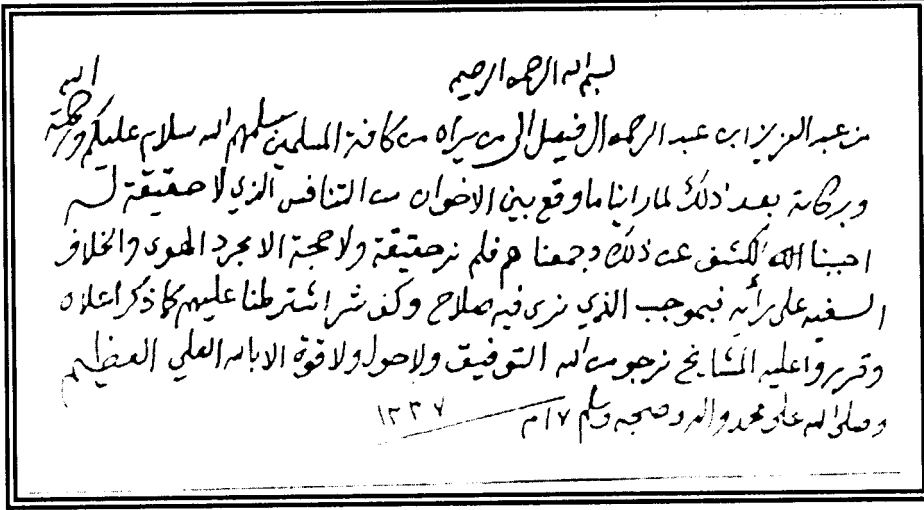 بسم الله الرحمن الرحيم
من عبد العزيز ابن عبد الرحمن ال فيصل الى من يراه من كافة المسلمين سلمهم الله سلام عليكم ورحمة الله
وبركاته بعد ذلك لما راينا ما وقع بين الاخوان من التنافس الذي لا حقيقة له
احببنا الكشف عن ذلك وجمعناهم فلم نر حقيقة ولا حجة الا مجرد الهوى والخلاف
السفيه على رأيه فبموجب الذي نرى فيه صلاح وكف شر اشترطنا عليهم كما ذكر اعلاه
وقرروا عليه المشايخ نرجو من الله التوفيق ولا حول ولا قوة الا بالله العلي العظيم
وصلى الله على محمد واله وصحبه وسلم ١٧ م ١٣٣٧